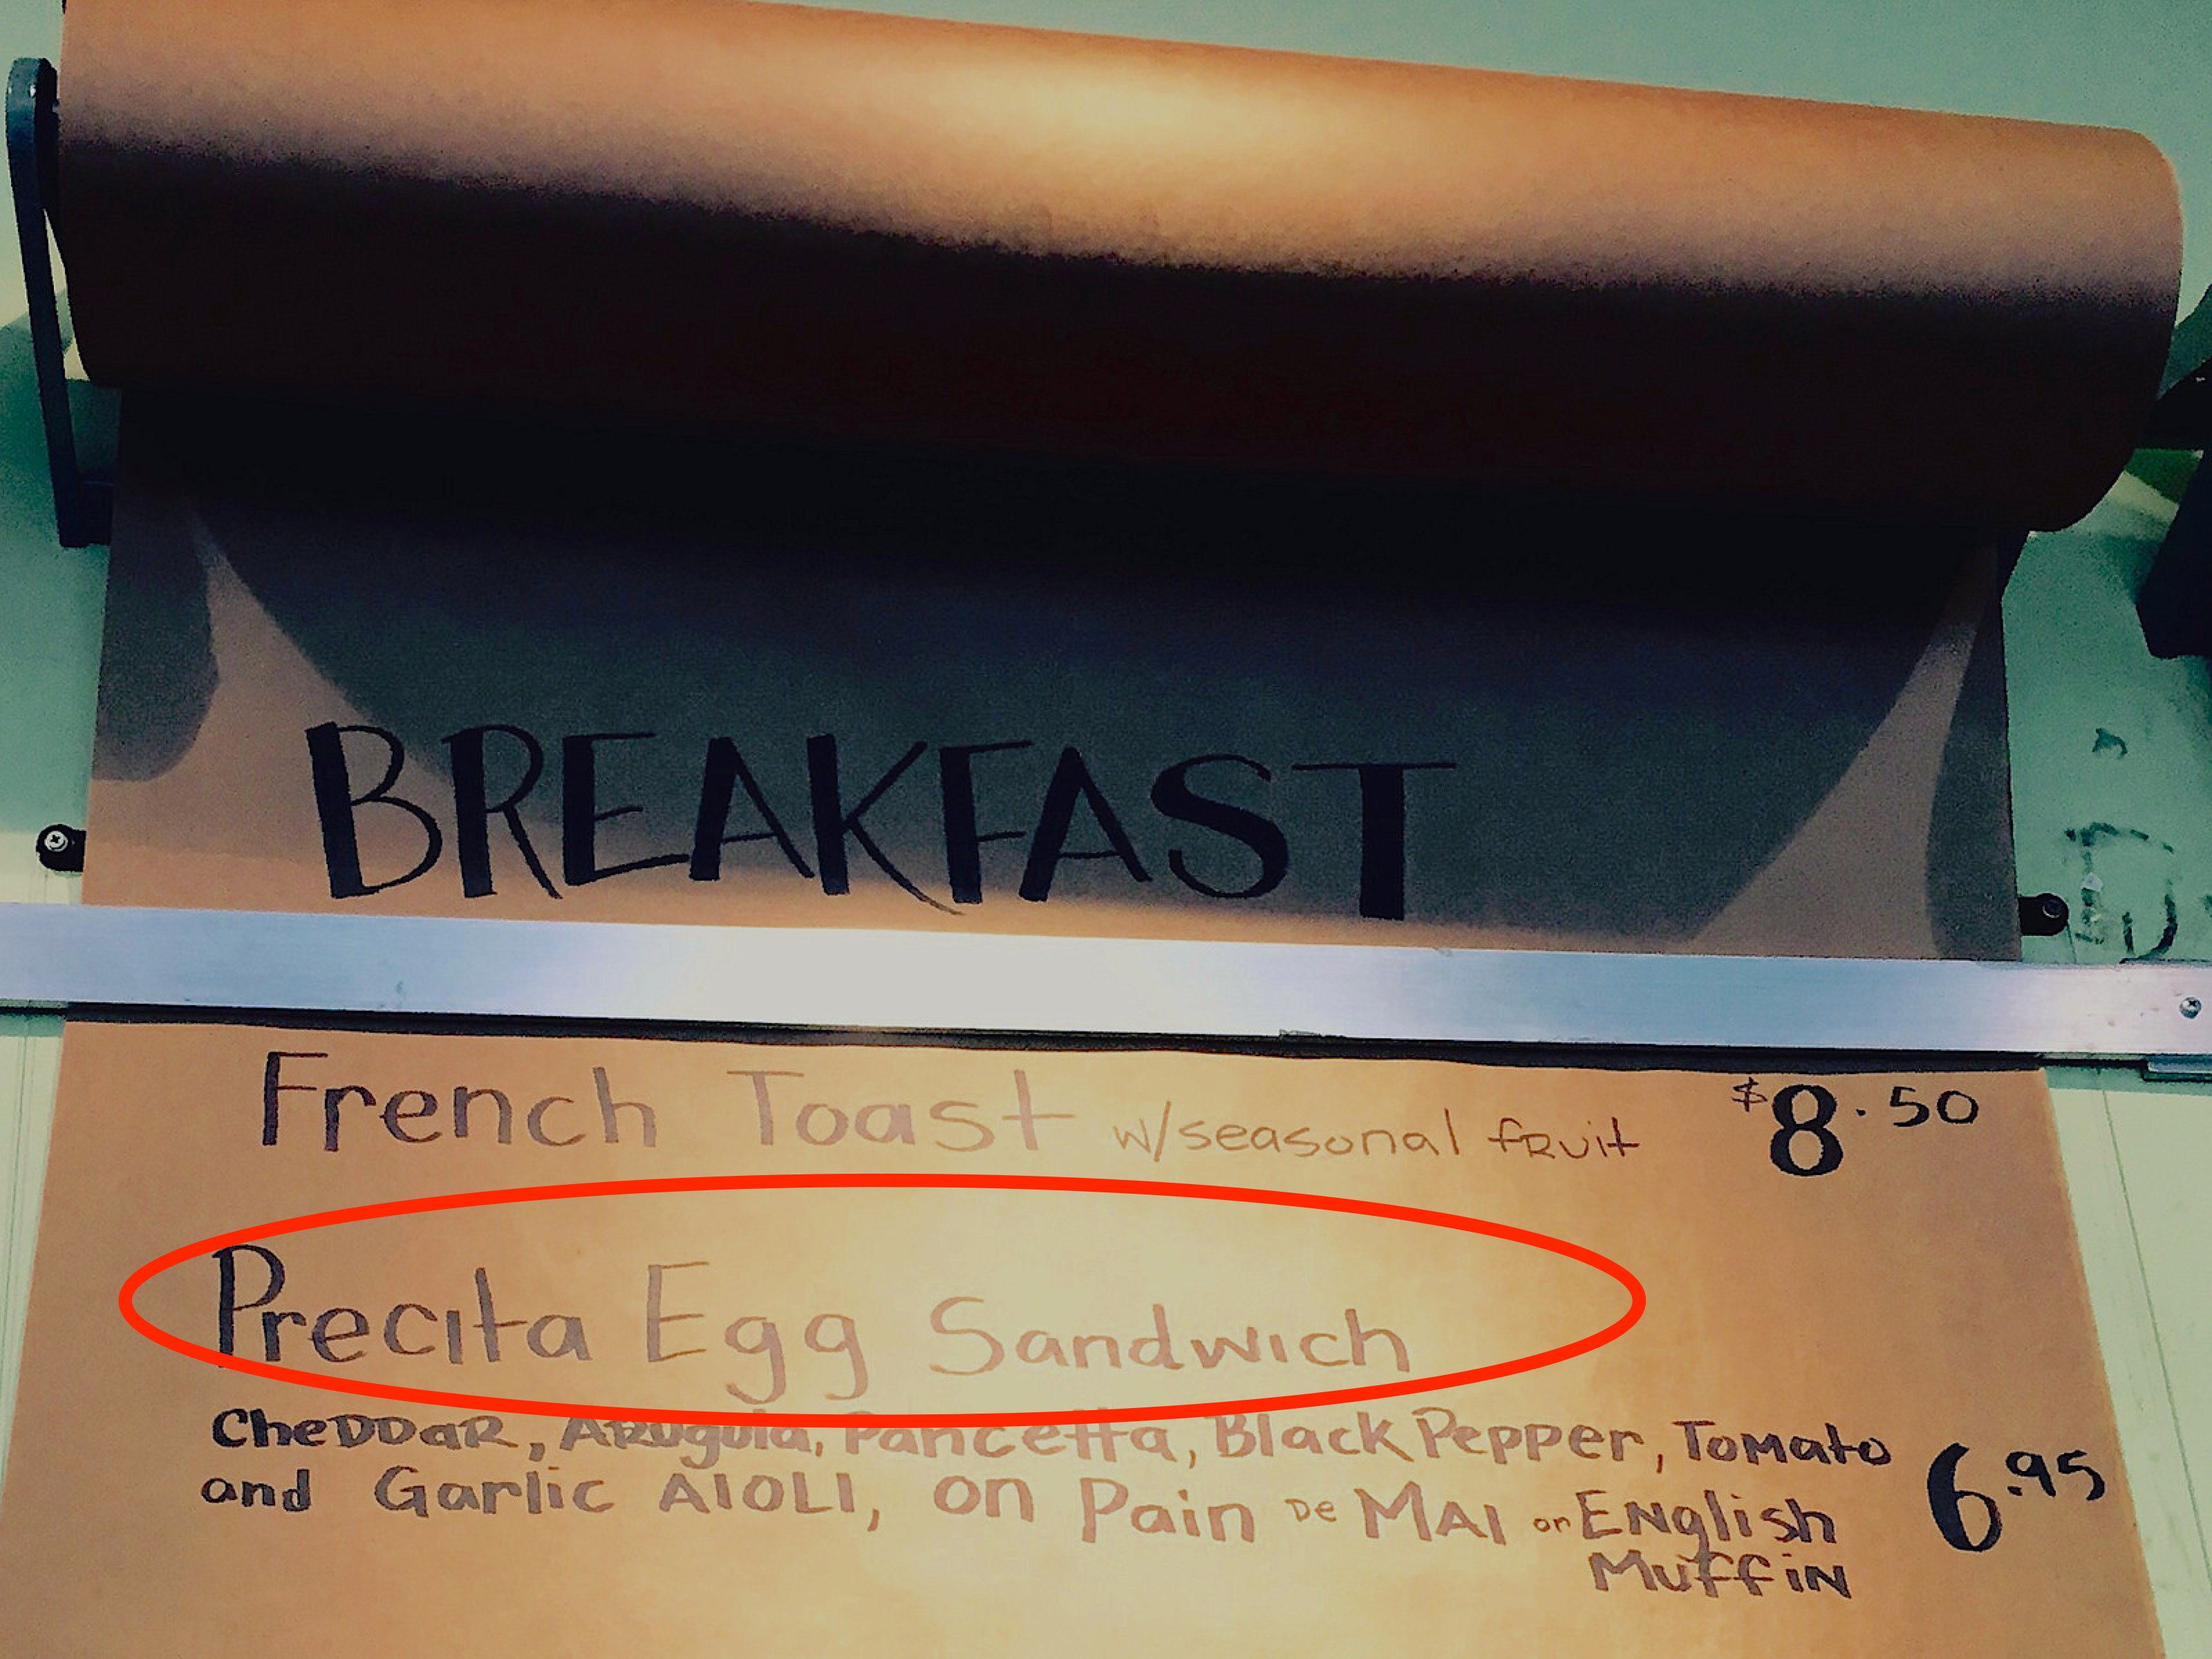 BREAKFAST
French Toast w/seasonal fRuit $8.50
Precita Egg Sandwich
CheDDaR, ARugula, Pancetta, Black Pepper, ToMato
and Garlic AIOLI, on Pain De MAI or ENglish 6.95
MuffiN